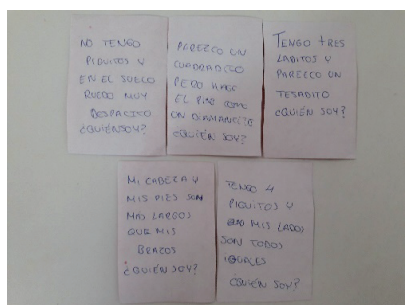 NO TENGO
PIQUITOS Y
EN EL SUELO
RUEDO MUY
DESPACITO
¿QUIÉN SOY?
PAREZCO UN
CUADRADITO
PERO HAGO
EL PINO COMO
UN DIAMANCITO
¿QUIÉN SOY?
TENGO TRES
LADITOS Y
PAREZCO UN
TEJADITO
¿QUIÉN SOY?
MI CABEZA Y
MIS PIES SON
MÁS LARGOS
QUE MIS
BRAZOS
¿QUIÉN SOY?
TENGO 4
PIQUITOS Y
MIS LADOS
SON TODOS
IGUALES
¿QUIÉN SOY?